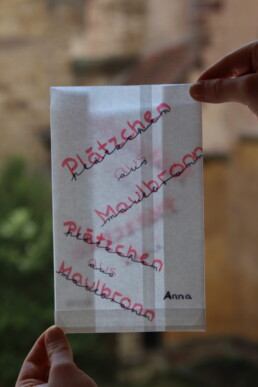 Plätzchen
aus
Maulbronn
Plätzchen
aus
Maulbronn
Anna